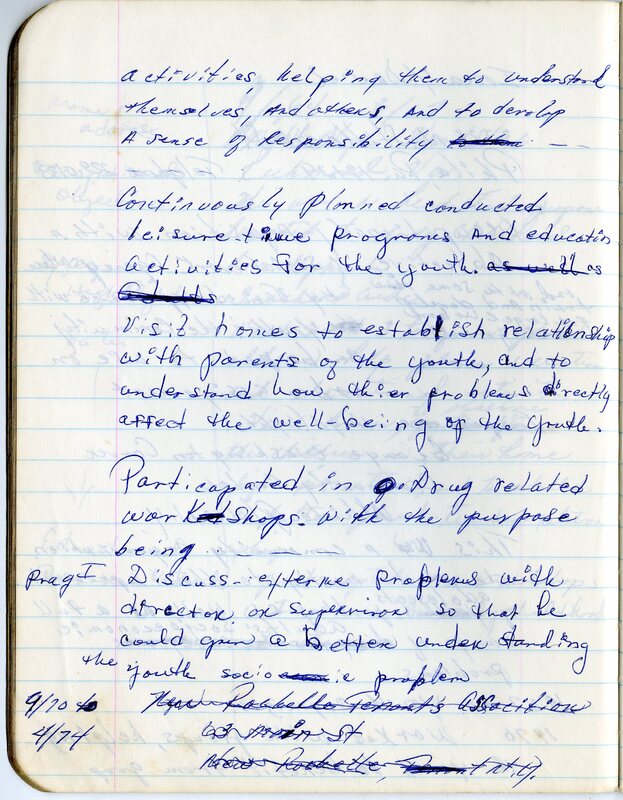 activities, helping them to understand
themselves, And others, And to devlop
A sense of Responsibility —
Continuously planned conducted
leisure-time programs And education
activities for the youth. as well as
Adults
Visit homes to establish relationship
with parents of the youth, and to
understand how thier problems directly
affect the well-being of the youth.
Participated in Drug related
workshops. with the purpose
being . ———
Prag I Discuss- exterme problems with
director or supervisor so that he
could gain a better under standing
the youth socio problem
9/70 to New Rochelle Tenant's Assocition
4/74 63 Main St
New Rochelle, N.Y.